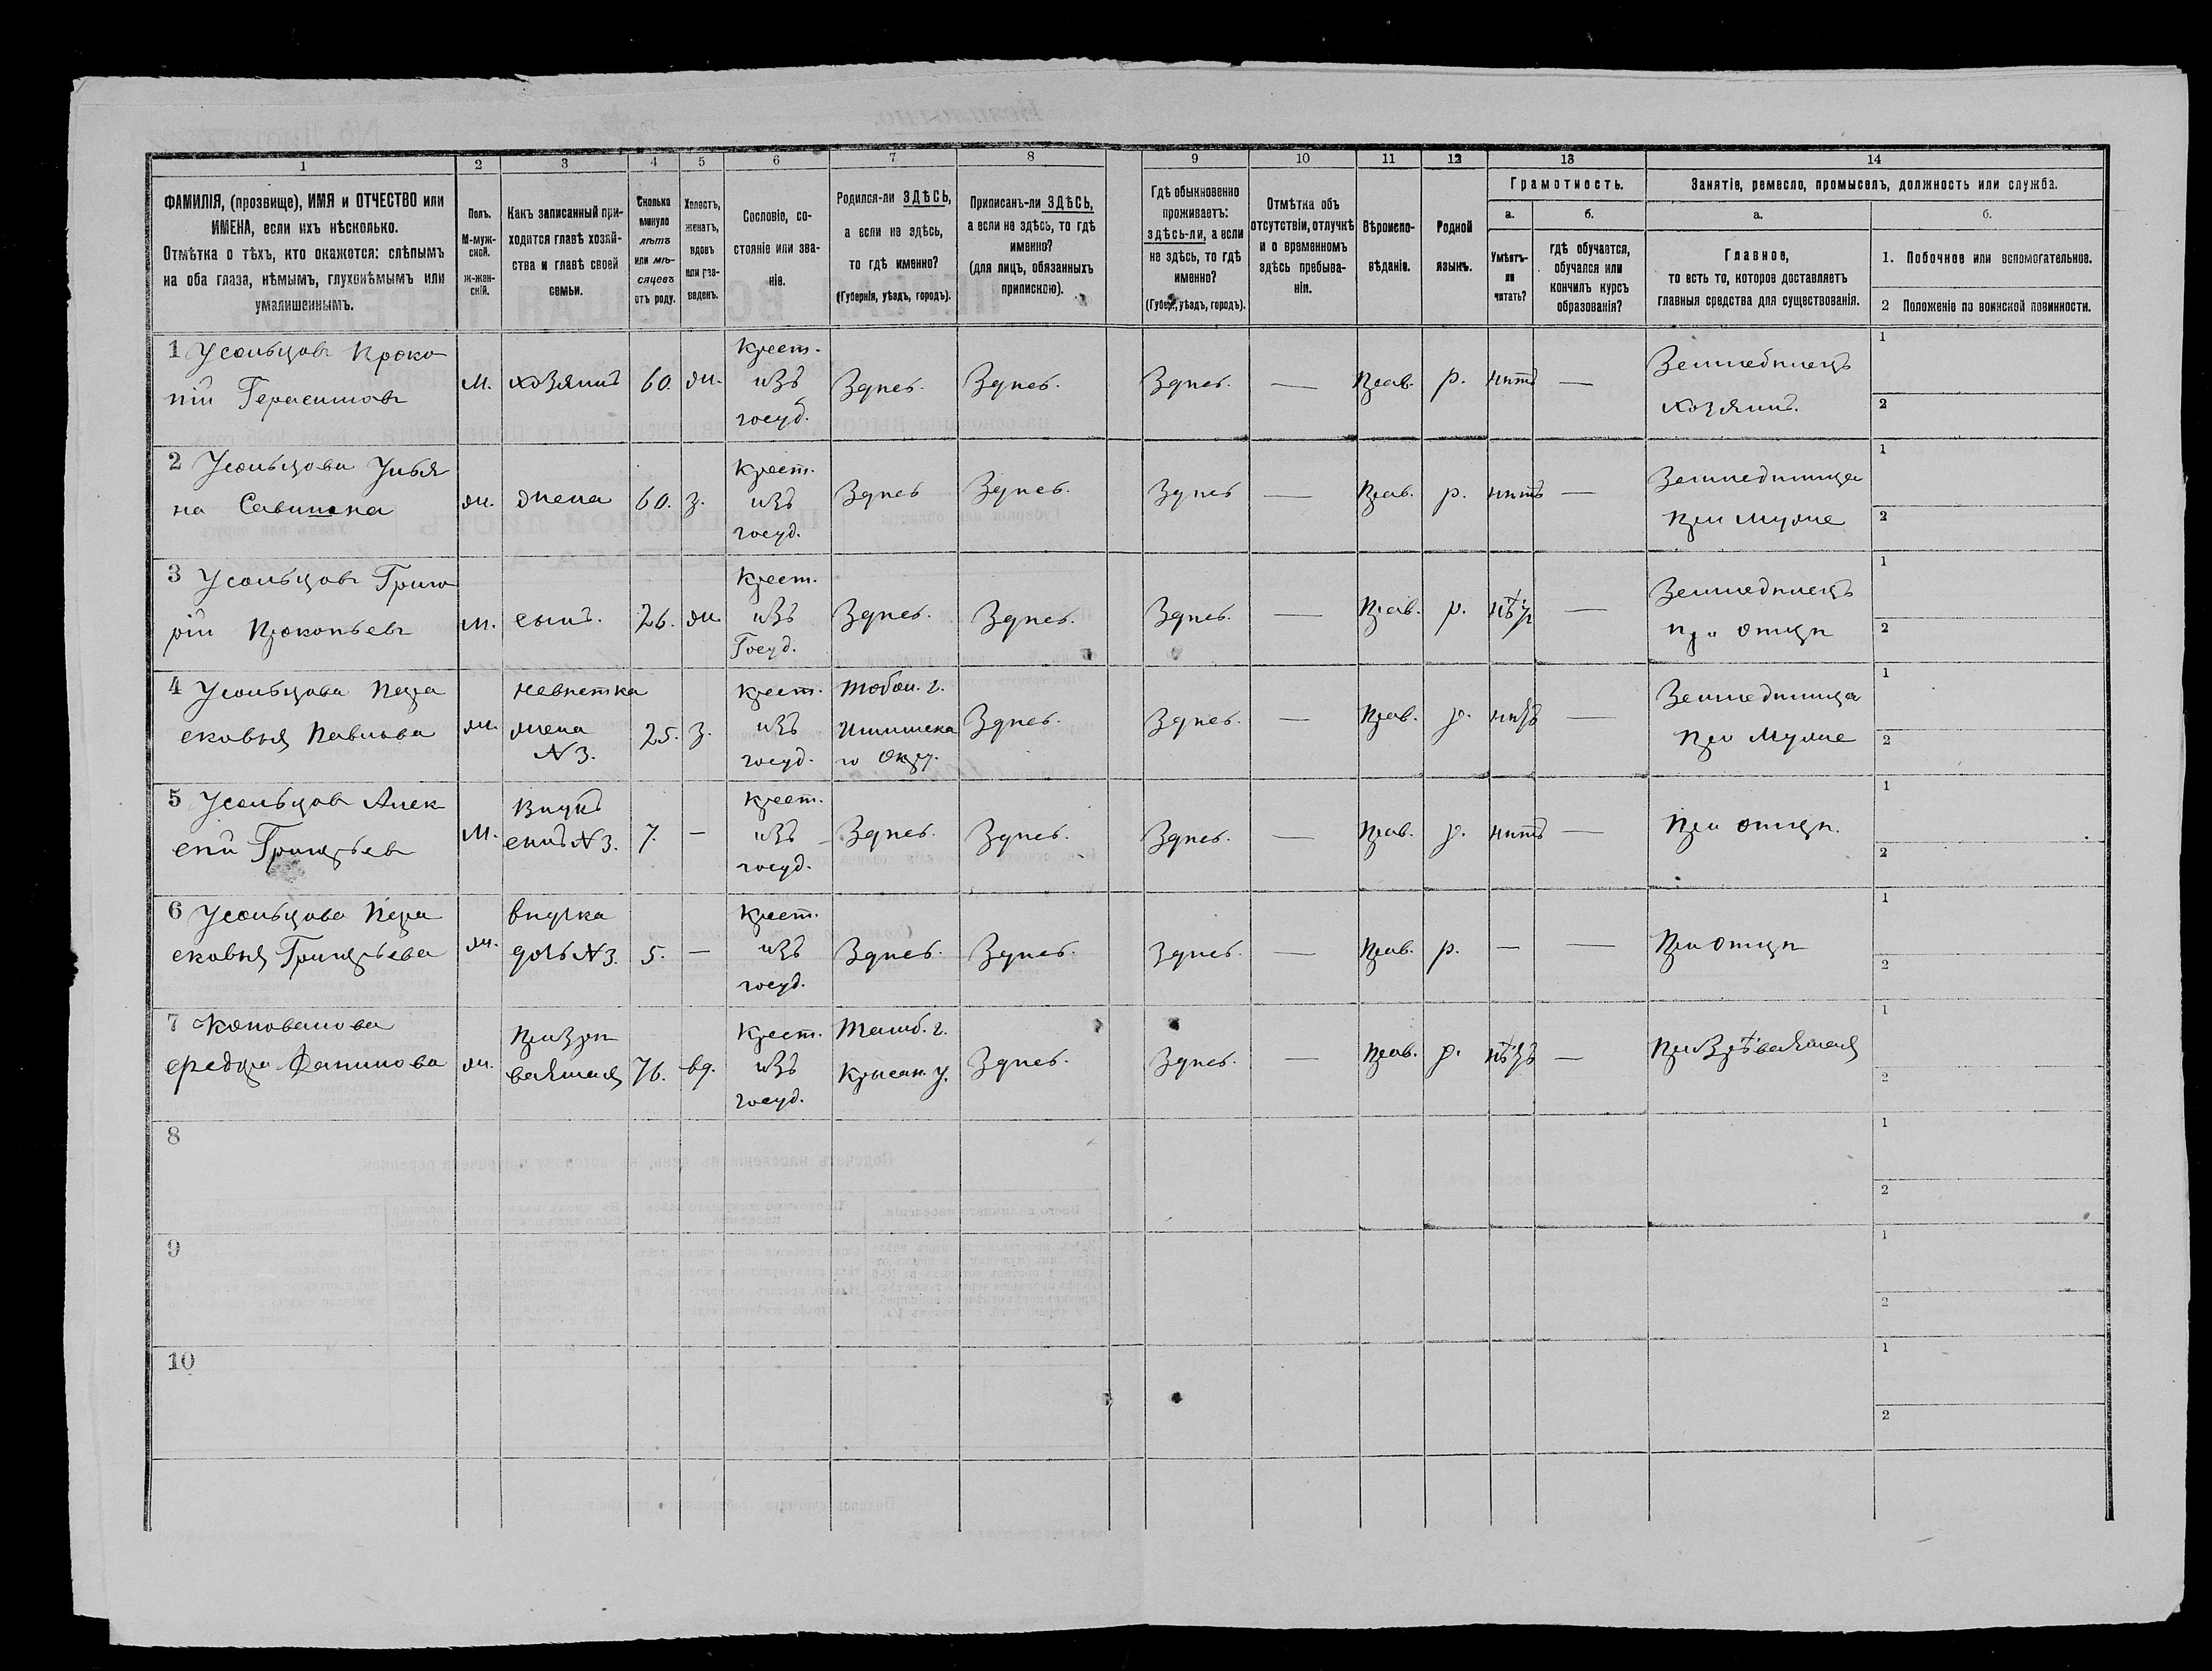 1 2 3 4 5 6 7 8 9 10 11 12 13 14
ФАМИЛІЯ, (прозвище), ИМЯ и ОТЧЕСТВО или
ИМЕНА, если ихъ нѣсколько.
Отмѣтка о тѣхъ, кто окажется: слѣпымъ
на оба глаза, нѣмымъ, глухонѣмымъ или
умалишеннымъ.
Полъ.
М-муж-
ской.
ж-жен-
скій.
Какъ записанный при-
ходится главѣ хозяй-
ства и главѣ своей
семьи.
Сколько
минуло
лѣтъ
или мѣ-
сяцевъ
отъ роду.
Холостъ,
женатъ,
вдовъ
или раз-
веденъ.
Сословіе, со-
стояніе или зва-
ніе.
Родился-ли ЗДѢСЬ,
а если не здѣсь,
то гдѣ именно?
(Губернія, уѣздъ, городъ).
Приписанъ-ли ЗДѢСЬ,
а если не здѣсь, то гдѣ
именно?
(для лицъ, обязанныхъ
припискою).
Гдѣ обыкновенно
проживаетъ:
здѣсь-ли, а если
не здѣсь, то гдѣ
именно?
(Губер., уѣздъ, городъ).
Отмѣтка объ
отсутствіи, отлучкѣ
и о временномъ
здѣсь пребыва-
ніи.
Вѣроиспо-
вѣданіе.
Родной
языкъ.
Грамотность.
а.
Умѣетъ-
ли
читать?
б.
гдѣ обучается,
обучался или
кончилъ курсъ
образованія?
Занятіе, ремесло, промыселъ, должность или служба.
а.
Главное,
то есть то, которое доставляетъ
главныя средства для существованія.
б.
1. Побочное или вспомогательное.
2 Положеніе по воинской повинности.
1 Усольцовъ Проко
пій Герасимовъ
М.
хозяинъ
60.
ж.
Крест.
изъ
госуд.
Здѣсь.
Здѣсь.
Здѣсь.
—
Прав.
р.
нѣтъ
—
Земледѣлецъ
хозяинъ.
1
2
2 Усольцова Улья
на Савишна
ж.
жена
60.
з.
Крест.
изъ
госуд.
Здѣсь
Здѣсь.
Здѣсь
—
Прав.
р.
нѣтъ
—
Земледѣлица
При мужѣ
1
2
3 Усольцовъ Григо
рій Прокопьевъ
М.
сынъ.
26.
ж.
Крест.
изъ
Госуд.
Здѣсь.
Здѣсь.
Здѣсь.
—
Прав.
р.
—
Земледѣлецъ
при отцѣ
1
2
4 Усольцова Пара
сковья Павлова
ж.
невѣстка
жена
N 3.
25.
з.
Крест.
изъ
госуд.
Тобол. г.
Ишимска
го Окру.
Здѣсь.
Здѣсь.
—
Прав.
р.
—
Земледѣлица
При мужѣ
1
2
5 Усольцовъ Алек
сѣй Григорьев
М.
Внукъ
сынъ N 3.
7.
—
Крест.
изъ
госуд.
Здѣсь.
Здѣсь.
Здѣсь.
—
Прав.
р.
нѣтъ
—
При отцѣ.
1
2
6 Усольцова Пара
сковья Григорьева
ж.
внучка
дочь N 3.
5.
—
Крест.
изъ
госуд.
Здѣсь.
Здѣсь.
Здѣсь.
—
Прав.
р.
—
—
При отцѣ
1
2
7
ж.
Призрѣ
ваемая
76.
вд.
Крест.
изъ
госуд.
Тамб. г.
Кирсан. у.
Здѣсь.
Здѣсь.
—
Прав.
р.
—
Призрѣваемая
1
2
8
1
2
9
1
2
10
1
2